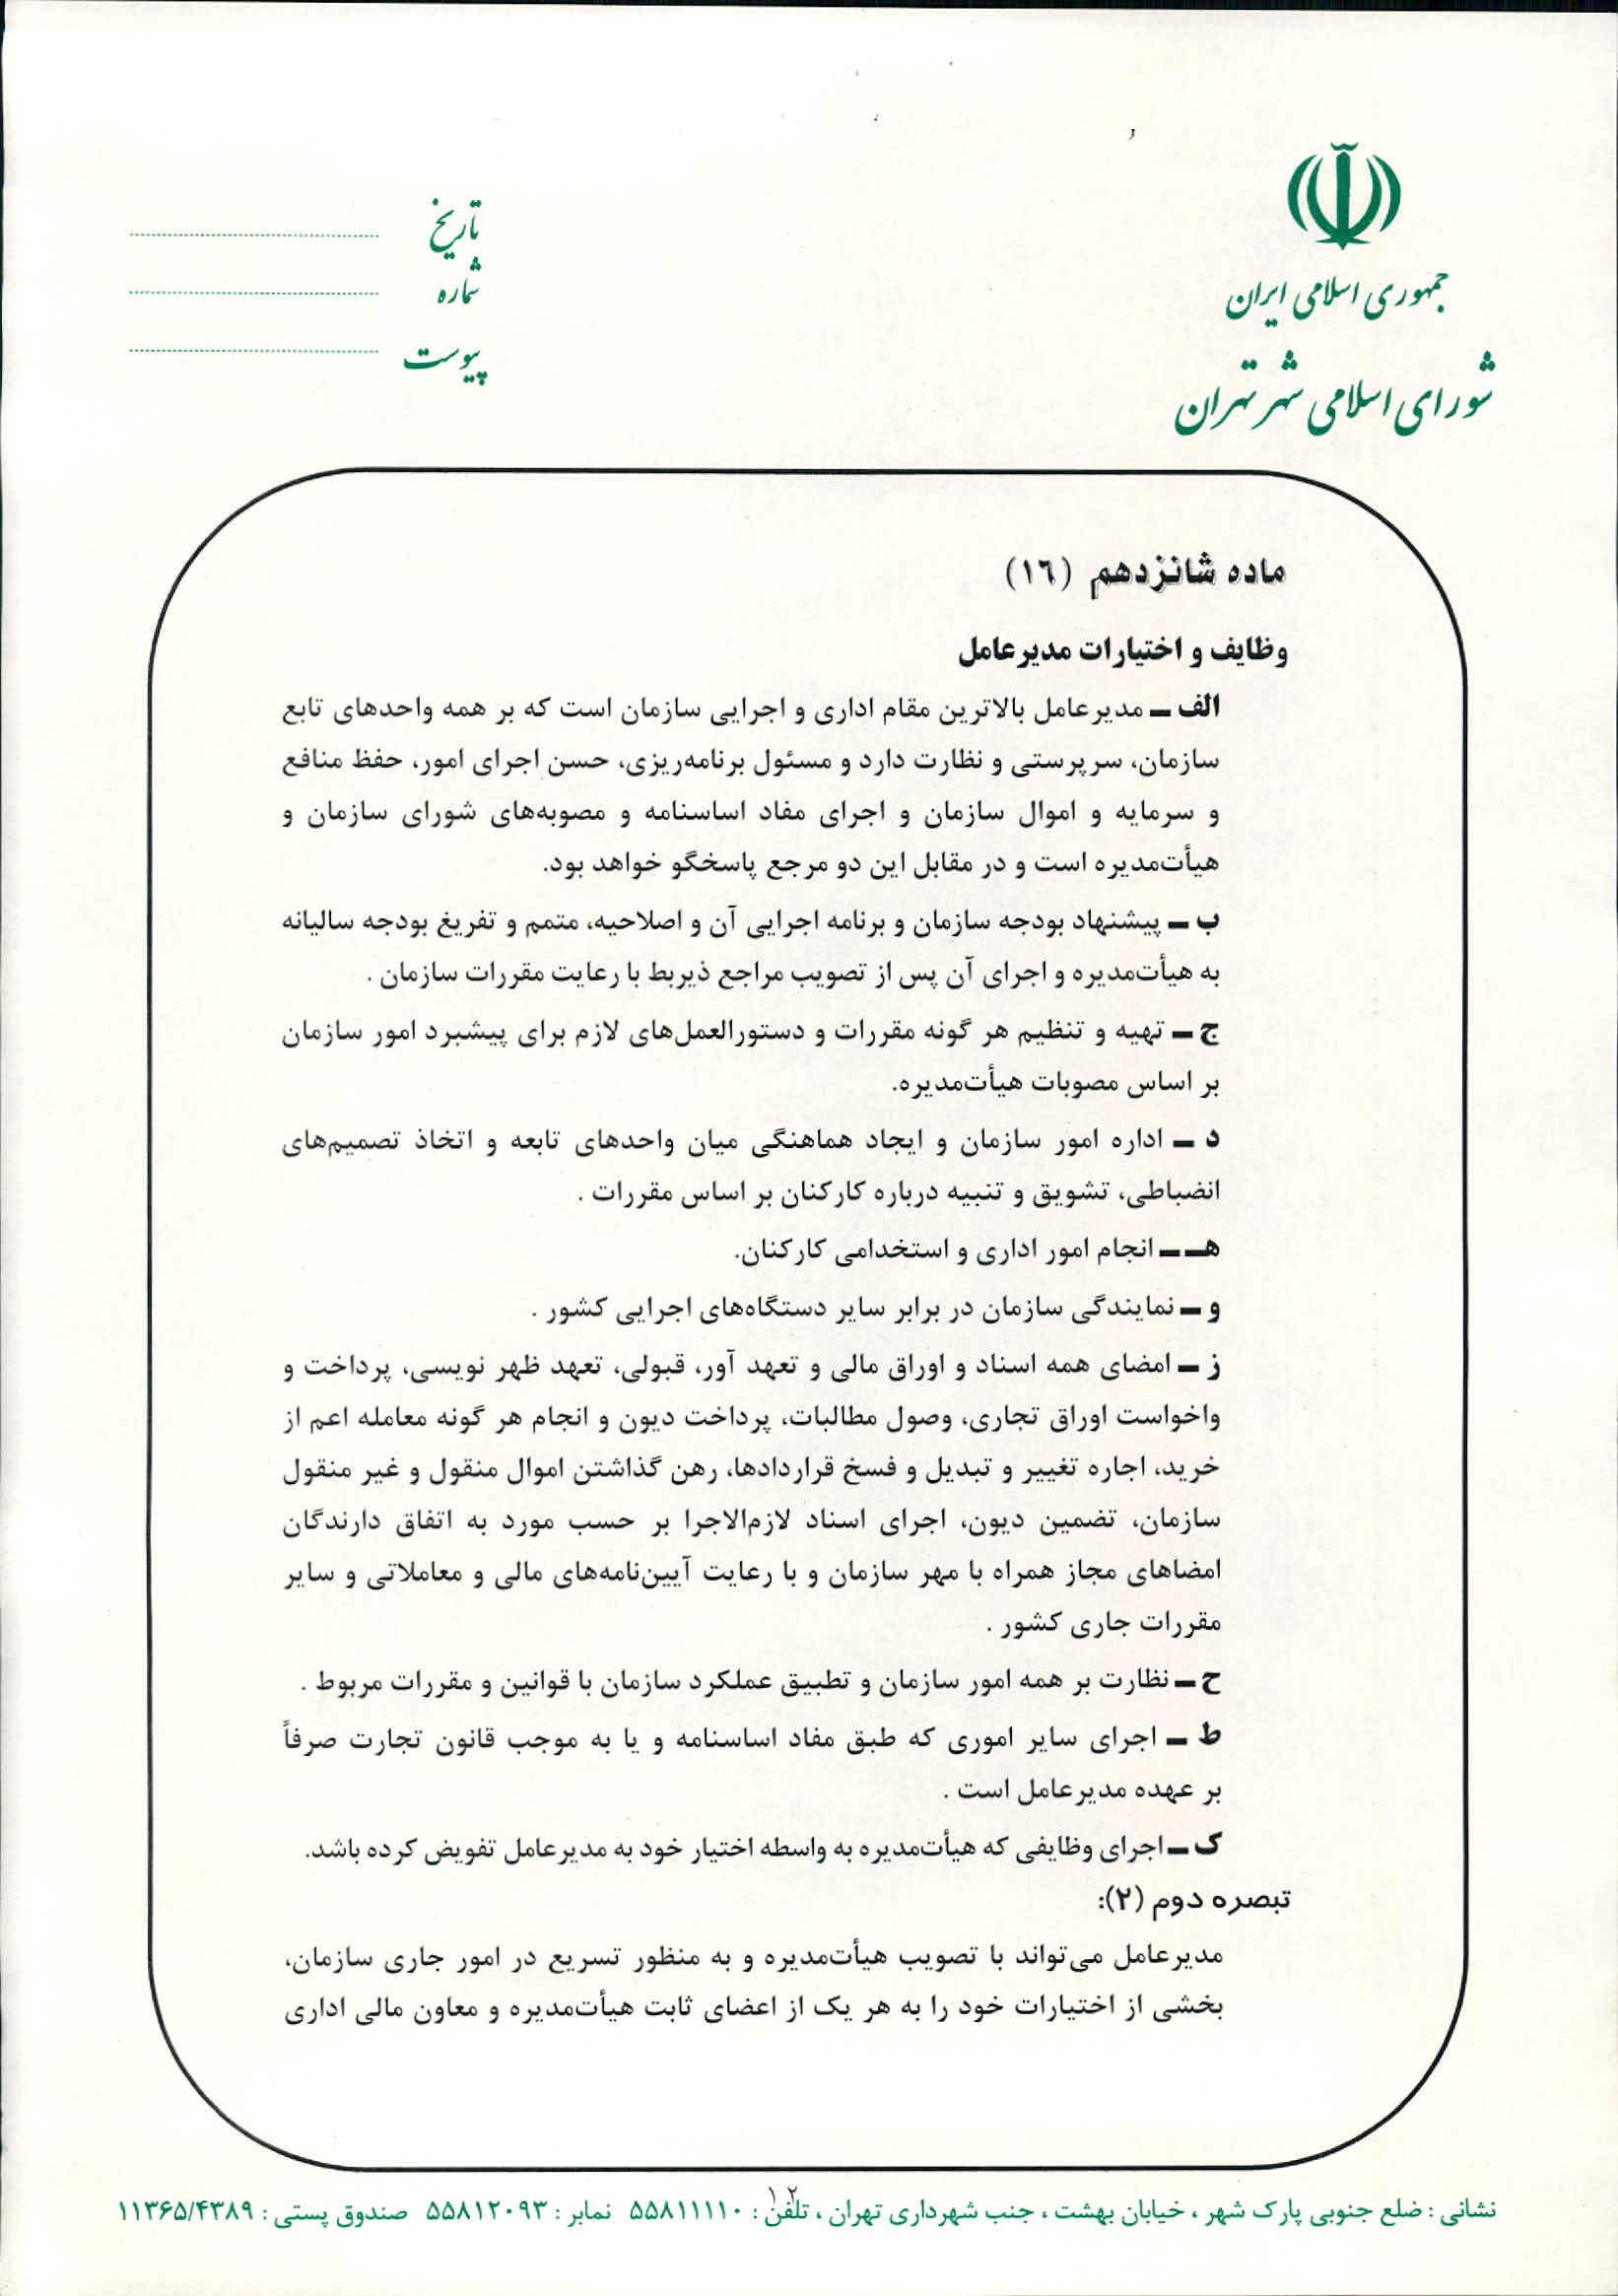 جمهوری اسلامی ایران
شورای اسلامی شهر تهران
تاریخ
شماره
پیوست
ماده شانزدهم (١٦)
وظایف و اختیارات مدیرعامل
الف ـ مدیرعامل بالاترین مقام اداری و اجرایی سازمان است که بر همه واحدهای تابع
سازمان، سرپرستی و نظارت دارد و مسئول برنامه‌ریزی، حسن اجرای امور، حفظ منافع
و سرمایه و اموال سازمان و اجرای مفاد اساسنامه و مصوبه‌های شورای سازمان و
هیأت‌مدیره است و در مقابل این دو مرجع پاسخگو خواهد بود.
ب ـ پیشنهاد بودجه سازمان و برنامه اجرایی آن و اصلاحیه، متمم و تفریغ بودجه سالیانه
به هیأت‌مدیره و اجرای آن پس از تصویب مراجع ذیربط با رعایت مقررات سازمان .
ج ـ تهیه و تنظیم هر گونه مقررات و دستورالعمل‌های لازم برای پیشبرد امور سازمان
بر اساس مصوبات هیأت‌مدیره.
د ـ اداره امور سازمان و ایجاد هماهنگی میان واحدهای تابعه و اتخاذ تصمیم‌های
انضباطی، تشویق و تنبیه درباره کارکنان بر اساس مقررات .
هـ ـ انجام امور اداری و استخدامی کارکنان.
و ـ نمایندگی سازمان در برابر سایر دستگاه‌های اجرایی کشور .
ز ـ امضای همه اسناد و اوراق مالی و تعهد آور، قبولی، تعهد ظهر نویسی، پرداخت و
واخواست اوراق تجاری، وصول مطالبات، پرداخت دیون و انجام هر گونه معامله اعم از
خرید، اجاره تغییر و تبدیل و فسخ قراردادها، رهن گذاشتن اموال منقول و غیر منقول
سازمان، تضمین دیون، اجرای اسناد لازم‌الاجرا بر حسب مورد به اتفاق دارندگان
امضاهای مجاز همراه با مهر سازمان و با رعایت آیین‌نامه‌های مالی و معاملاتی و سایر
مقررات جاری کشور .
ح ـ نظارت بر همه امور سازمان و تطبیق عملکرد سازمان با قوانین و مقررات مربوط .
ط ـ اجرای سایر اموری که طبق مفاد اساسنامه و یا به موجب قانون تجارت صرفاً
بر عهده مدیرعامل است .
ک ـ اجرای وظایفی که هیأت‌مدیره به واسطه اختیار خود به مدیرعامل تفویض کرده باشد.
تبصره دوم (۲):
مدیرعامل می‌تواند با تصویب هیأت‌مدیره و به منظور تسریع در امور جاری سازمان،
بخشی از اختیارات خود را به هر یک از اعضای ثابت هیأت‌مدیره و معاون مالی اداری
۱۲
نشانی : ضلع جنوبی پارک شهر ، خیابان بهشت ، جنب شهرداری تهران ، تلفن : ۵۵۸۱۱۱۱۰ نمابر : ۵۵۸۱۲۰۹۳ صندوق پستی : ۱۱۳۶۵/۴۳۸۹